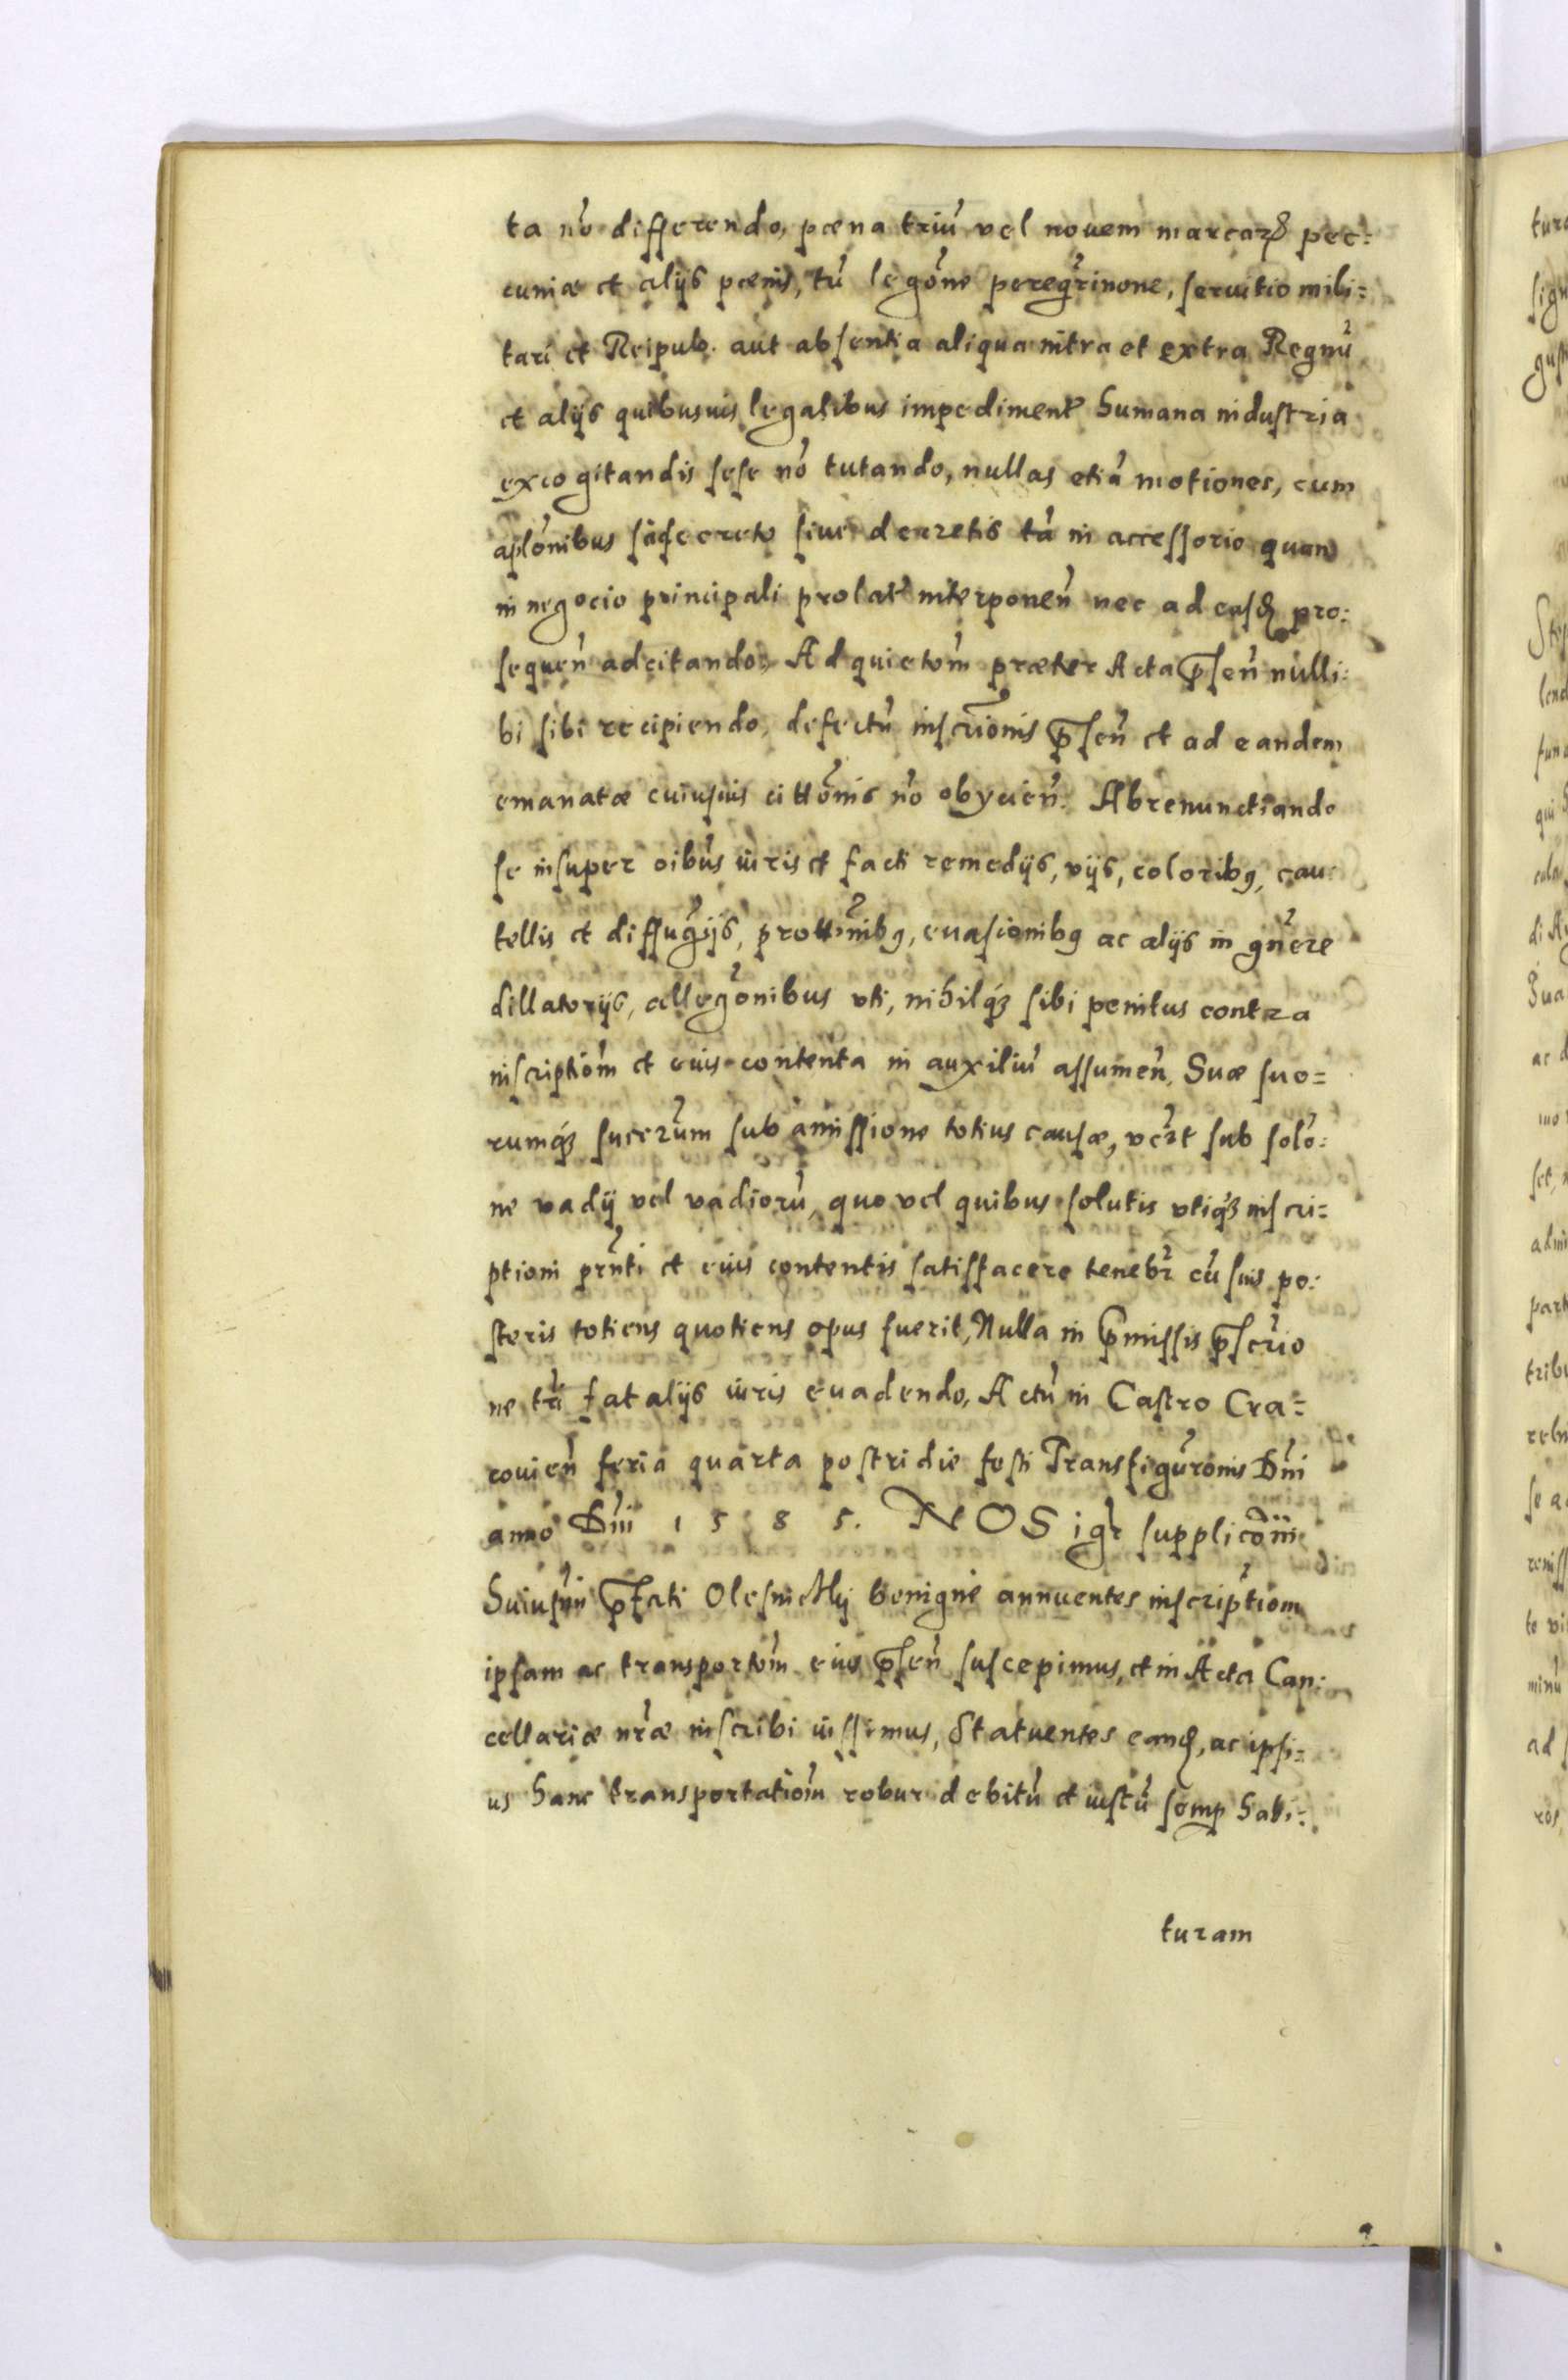 ta nō differendo, pœna triū vel nouem marcarꝝ pec=
cuniæ et alijs pœnis, tū legōne peregrīnone, seruitio mili=
tari et Reipub. aut absentia aliqua intra et extra Regnū
et alijs quibusuis legalibus impediment' humana industria
excogitandis sese nō tutando, nullas etiā motiones, cum
aplōnibus decreto siue decretis tā in accessorio quam
in negocio principali prolat' interponeñ nec ad easdꝫ pro:
sequeñ adcitando, Ad quietōm præter Acta p̄señ nulli:
bi sibi recipiendo, defectū inscriōnis p̄señ et ad eandem
emanatæ cuiusuis cittōnis nō obycień. Abrenunctiando
se insuper oībus iuris et facti remedijs, vijs, coloribꝫ, cau:
tellis et diffugijs, prottōnibꝫ, euasionibꝫ ac alijs in gn̄ere
dillatorijs, allegōnibus vti, nihilqꝫ sibi penitus contra
inscriptiōm et eius contenta in auxiliū assumeñ, Suæ suo=
rumqꝫ sucerūm sub amissione totius causæ, vert sub solō:
ne vadij vel vadiorū, quo vel quibus solutis vtiqꝫ inscri=
ptioni prn̄ti et eius contentis satisfacere tenebr̄ cū suis po:
steris totiens quotiens opus fuerit, Nulla in p̄missis p̄scrio
ne tr̄i fatalijs iuris euadendo, Actū in Castro Cra=
couień feria quarta postridie festi Transfigurōnis Dn̄i
anno Dn̄i 1585. NOS igr̄ supplicōni
huiusm̄i p̄fati Olesnickij benigne annuentes inscriptiōm
ipsam ac transportōm eius p̄señ suscepimus, et in Acta Can:
cellariæ nr̄æ inscribi iussimus, Statuentes eandꝫ, ac ipsi=
us hanc transportatiōm robur debitū et iustū semꝑ habi:
turam